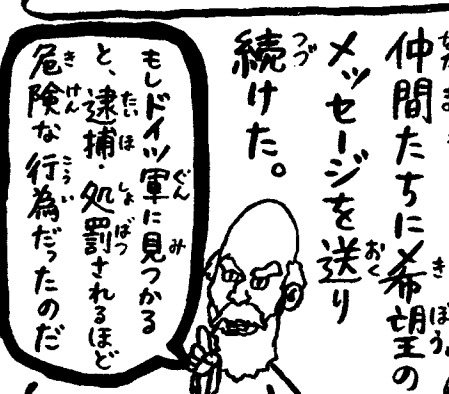 仲間たちに希望の
メッセージを送り
続けた。
もしドイツ軍に見つかる
と、逮捕・処罰されるほど
危険な行為だったのだ